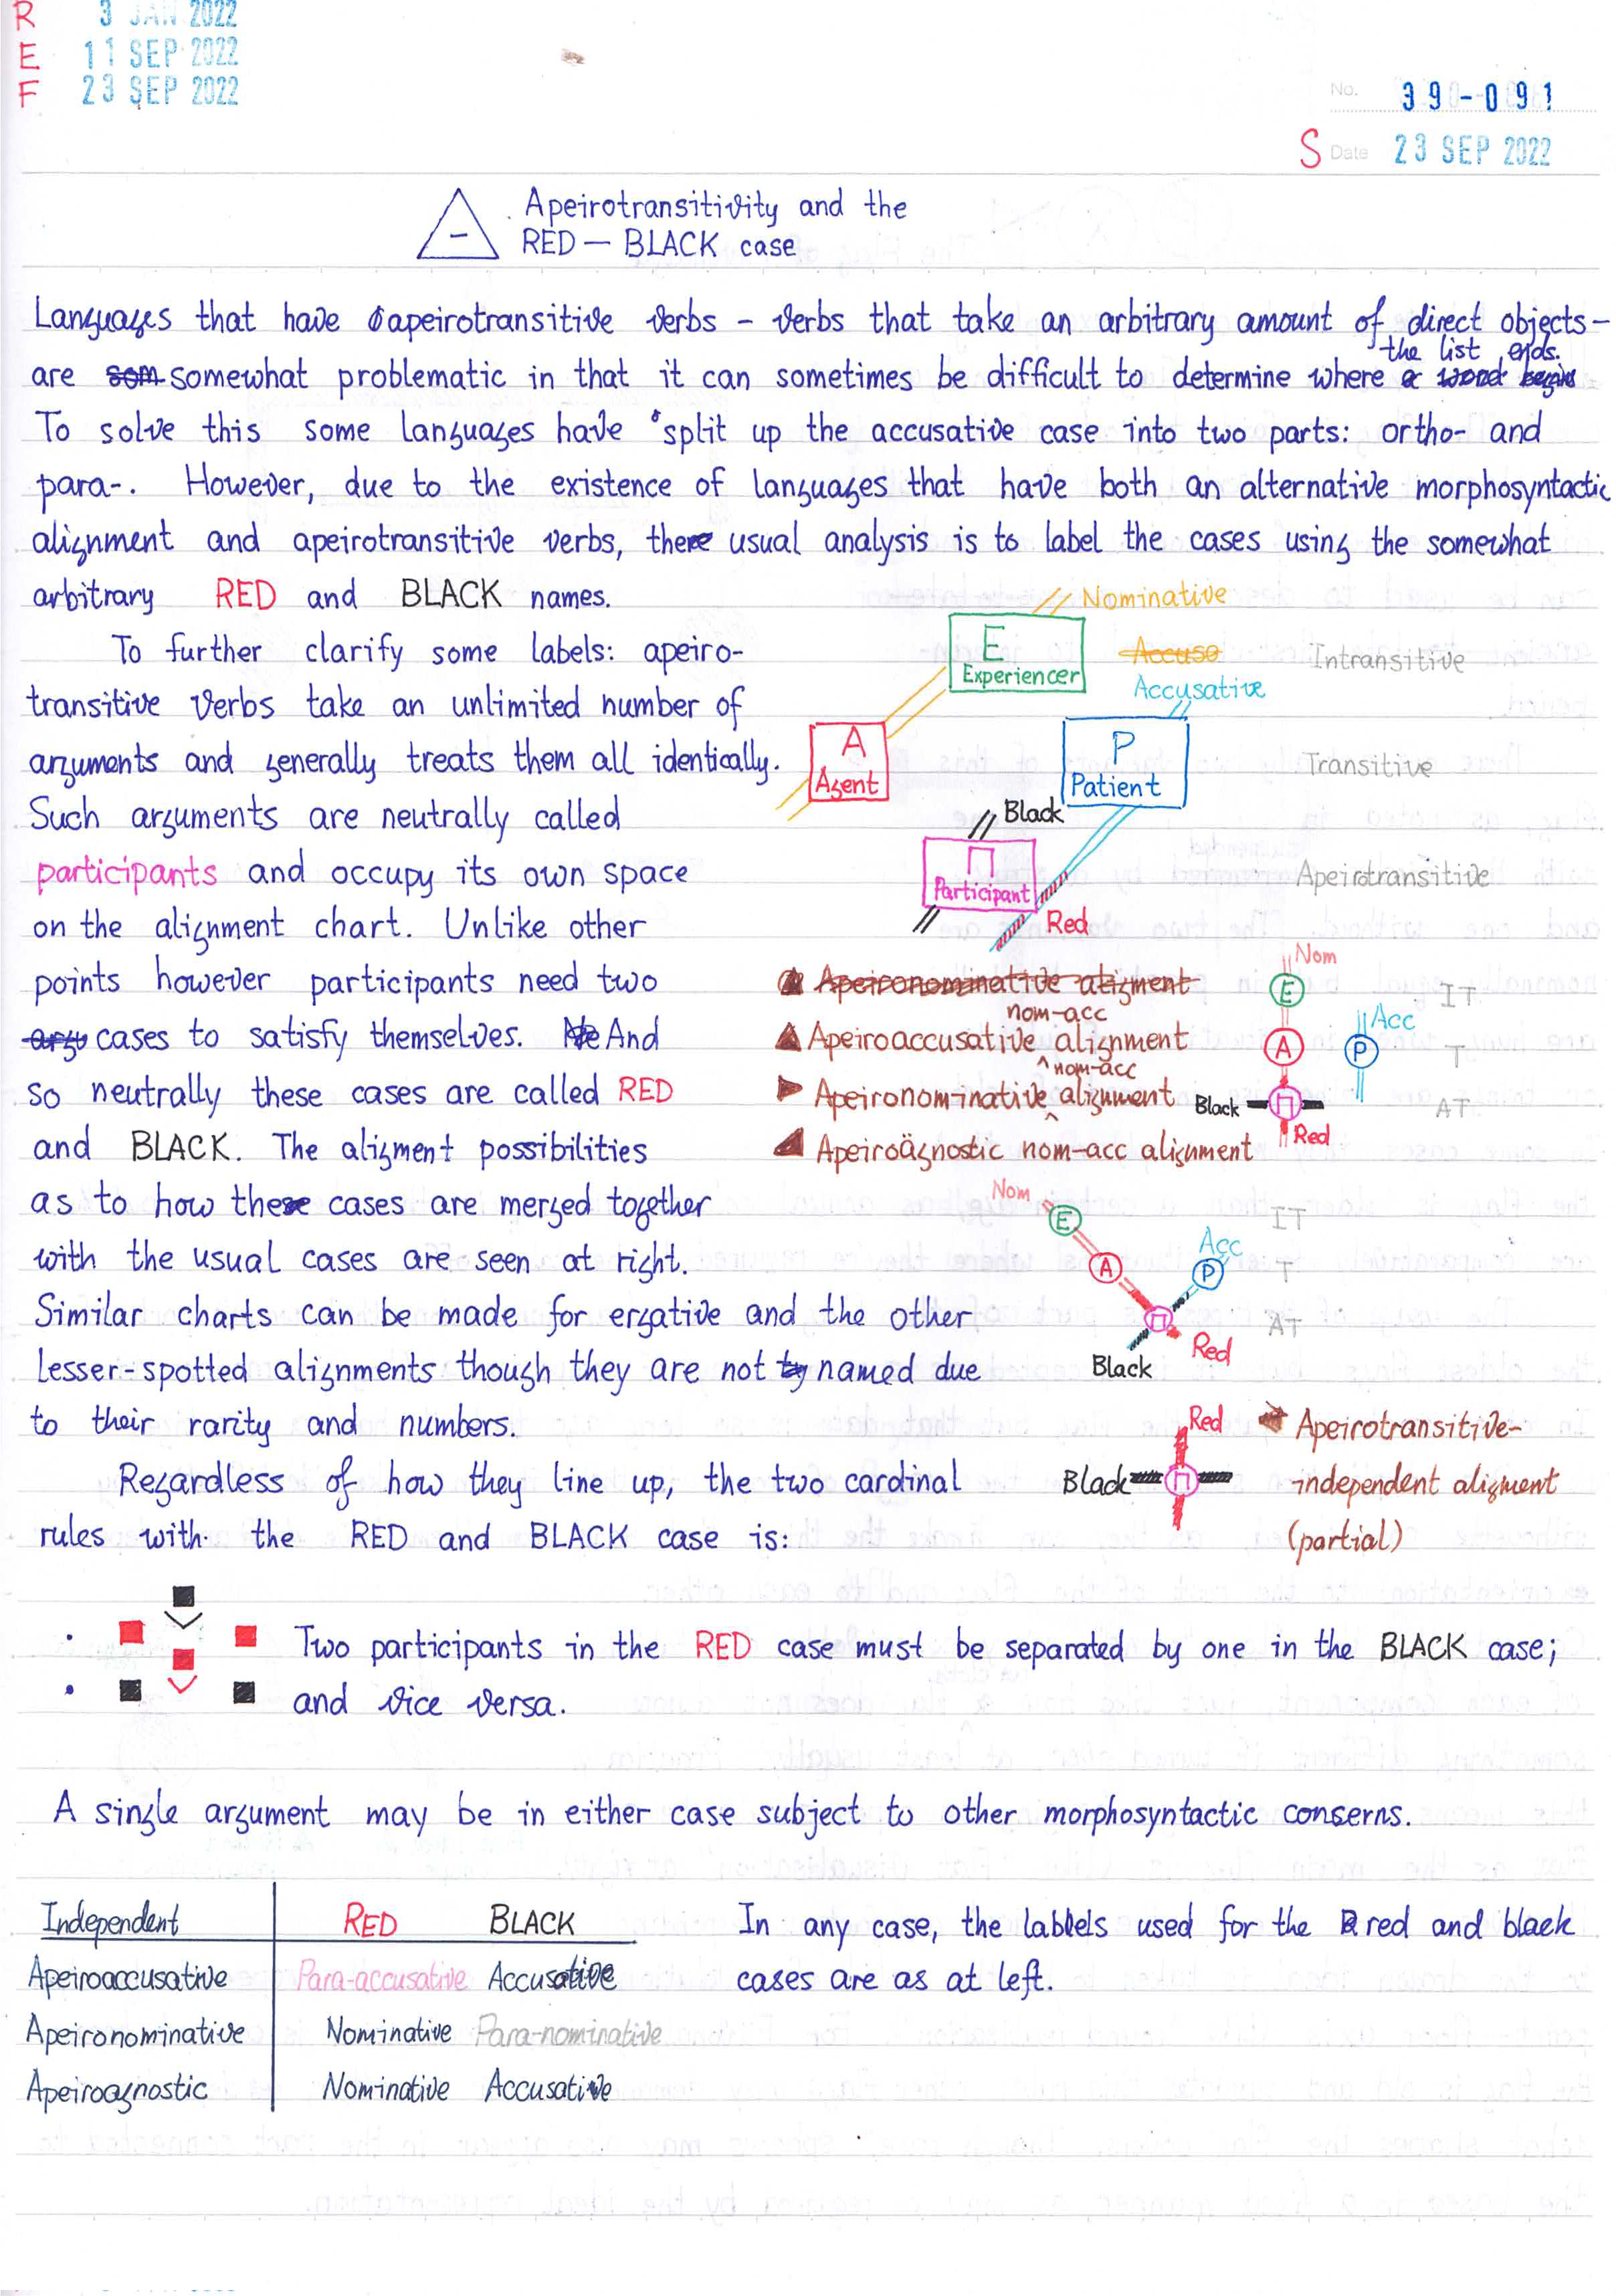 R 3 JAN 2022
E 11 SEP 2022
F 23 SEP 2022
No. 39-091
S Date 23 SEP 2022
Apeirotransitivity and the
RED — BLACK case
Languages that have apeirotransitive verbs – verbs that take an arbitrary amount of direct objects –
are som somewhat problematic in that it can sometimes be difficult to determine where a word begins the list ends.
To solve this some languages have split up the accusative case into two parts: ortho- and
para-. However, due to the existence of languages that have both an alternative morphosyntactic
alignment and apeirotransitive verbs, there usual analysis is to label the cases using the somewhat
arbitrary RED and BLACK names.
To further clarify some labels: apeiro-
transitive verbs take an unlimited number of
arguments and generally treats them all identically.
Such arguments are neutrally called
participants and occupy its own space
on the alignment chart. Unlike other
points however participants need two
argu cases to satisfy themselves. Ne And
so neutrally these cases are called RED
and BLACK. The aligment possibilities
as to how these cases are merged together
with the usual cases are seen at right.
Similar charts can be made for ergative and the other
lesser-spotted alignments though they are not named due
to their rarity and numbers.
Regardless of how they line up, the two cardinal
rules with the RED and BLACK case is:
Nominative
E
Experiencer
Accusa
Accusative
Intransitive
A
Agent
P
Patient
Transitive
Black
Π
Participant
Apeirotransitive
Red
Apeironominative aligment
Apeiroaccusative nom-acc alignment
Apeironominative nom-acc alignment
Apeiroägnostic nom-acc alignment
Nom
E
IT
Acc
A
P
T
Black
Π
AT
Red
Nom
E
IT
Acc
A
P
T
Π
AT
Red
Black
Red
Black
Π
Apeirotransitive-
independent aligment
(partial)
· Two participants in the RED case must be separated by one in the BLACK case;
· and vice versa.
A single argument may be in either case subject to other morphosyntactic conserns.
Independent RED BLACK
Apeiroaccusative Para-accusative Accusative
Apeironominative Nominative Para-nominative
Apeiroagnostic Nominative Accusative
In any case, the labels used for the red and black
cases are as at left.